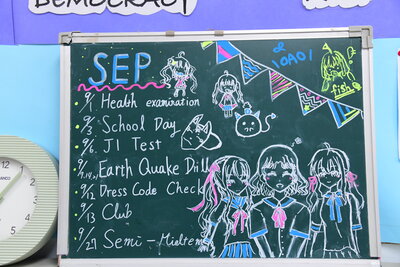 DEMOCRACY
SEP
10A01
fish
9/1 Health examination
9/3 School Day
9/6 J1 Test
Earth Quake Drill
9/12 Dress Code Check
9/13 Club
9/27 Semi-Midterm